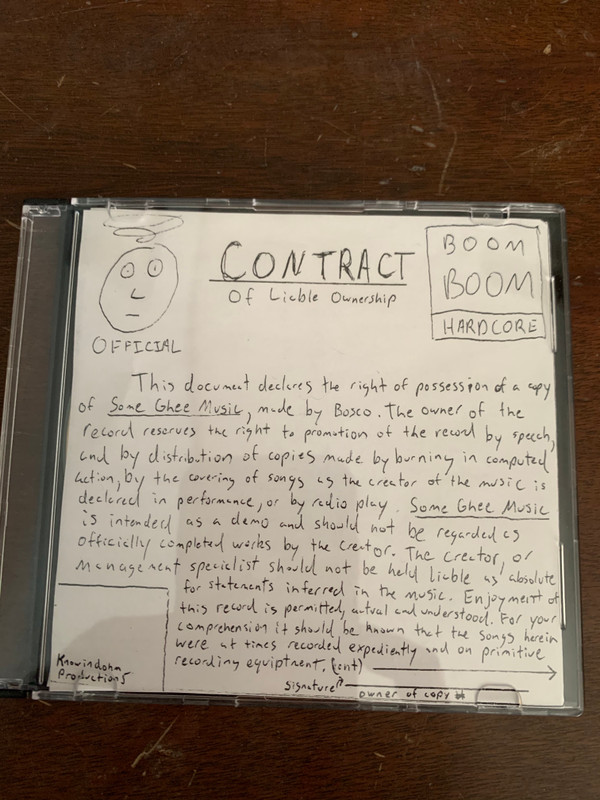 CONTRACT
Of Liable Ownership
OFFICIAL
BOOM
BOOM
HARDCORE
This document declares the right of possession of a copy
of Some Ghee Music, made by Bosco. The owner of the
record reserves the right to promotion of the record by speech,
and by distribution of copies made by burning in computed
action, by the covering of songs as the creator of the music is
declared in performance, or by radio play. Some Ghee Music
is intended as a demo and should not be regarded as
officially completed works by the creator. The creator, or
management specialist should not be held liable as absolute
for statements inferred in the music. Enjoyment of
this record is permitted, actual and understood. For your
comprehension it should be known that the songs herein
were at times recorded expediently and on primitive
recording equiptment. (cont)
Knowindohn
Productions
Signature
owner of copy #